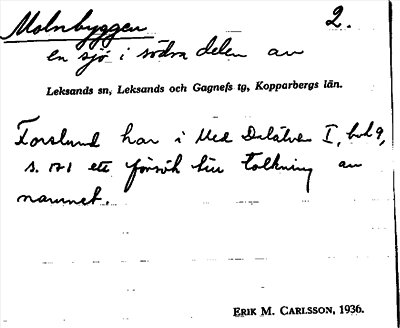 Molnbyggen 2.
en sjö i södra delen av
Leksands sn, Leksands och Gagnefs tg, Kopparbergs län.
Forslund har i Med Dalälven I, bd 9,
s. 171 ett försök till tolkning av
namnet.
ERIK M. CARLSSON, 1936.